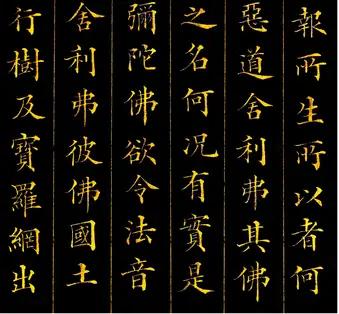 報所生所以者何
惡道舍利弗其佛
之名何况有實是
彌陀佛欲令法音
舍利弗彼佛國土
行樹及寶羅網出